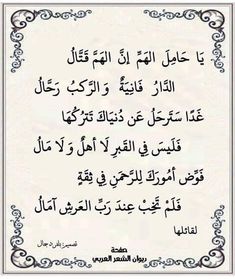 يَا حَامِلَ الهَمِّ إنَّ الهَمَّ قَتَّالُ
الدَّارُ فَانِيَةٌ وَ الرَّكبُ رَحَّالُ
غَدًا سَتَرحَلُ عَن دُنيَاكَ تَترُكُهَا
فَلَيسَ فِي القَبرِ لَا أهلٌ وَ لَا مَالُ
فَوِّض أمُورَكَ لِلرَّحمَنِ فِي ثِقَةٍ
فَلَمْ تَخِبْ عِندَ رَبِّ العَرشِ آمَالُ
لقائلها
صفحة
ديوان الشعر العربي